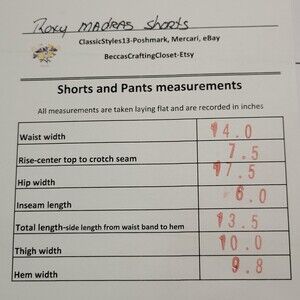 Roxy MADRAS Shorts
ClassicStyles13-Poshmark, Mercari, eBay
BeccasCraftingCloset-Etsy
Shorts and Pants measurements
All measurements are taken laying flat and are recorded in inches
Waist width 14.0
Rise-center top to crotch seam 7.5
Hip width 17.5
Inseam length 6.0
Total length-side length from waist band to hem 13.5
Thigh width 10.0
Hem width 9.8